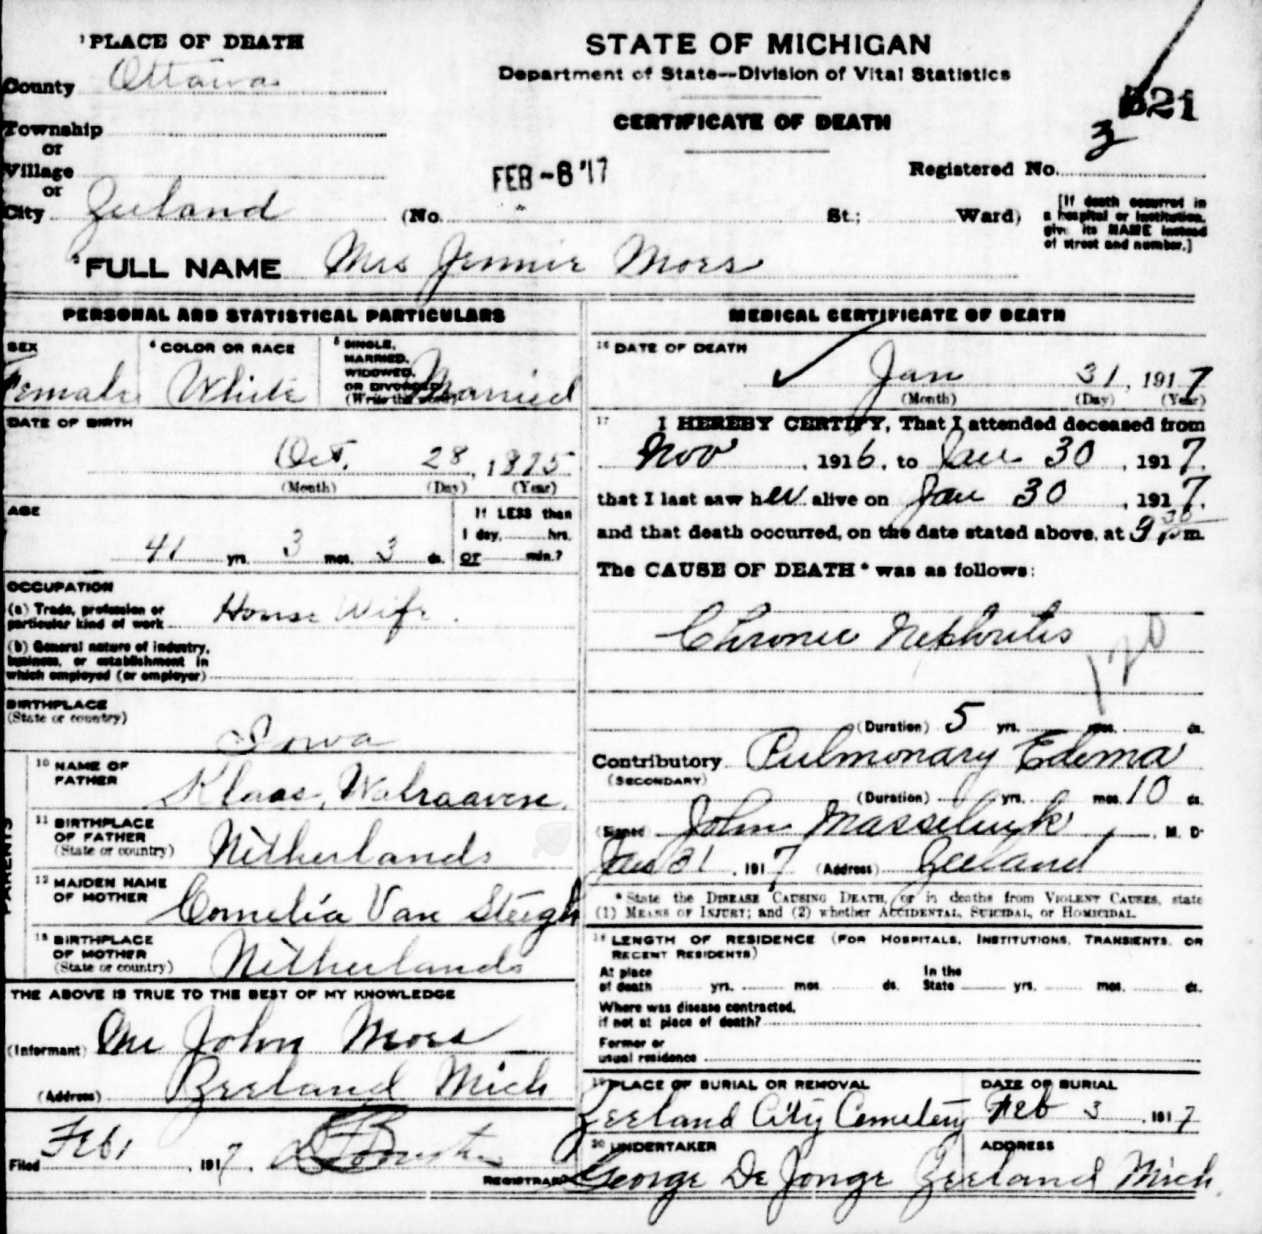 ¹PLACE OF DEATH
STATE OF MICHIGAN
Department of State—Division of Vital Statistics
CERTIFICATE OF DEATH
521
County Ottawa
Township
or
Village
or
City Zeeland
FEB -6 '17
Registered No. 3
(No. St.; Ward)
[If death occurred in
a hospital or institution,
give its NAME instead
of street and number.]
²FULL NAME Mrs Jennie Moes
PERSONAL AND STATISTICAL PARTICULARS
SEX
Female
⁴ COLOR OR RACE
White
⁵ SINGLE,
MARRIED,
WIDOWED,
OR DIVORCED
(Write the word)
Married
DATE OF BIRTH
Oct. 28, 1875
(Month) (Day) (Year)
AGE
41 yrs. 3 mos. 3 ds.
If LESS than
1 day, hrs.
or min.?
OCCUPATION
(a) Trade, profession or
particular kind of work House Wife.
(b) General nature of industry,
business, or establishment in
which employed (or employer)
BIRTHPLACE
(State or country)
Iowa
PARENTS
10 NAME OF
FATHER
Klaas, Walraaven.
11 BIRTHPLACE
OF FATHER
(State or country)
Netherlands
12 MAIDEN NAME
OF MOTHER
Cornelia Van
13 BIRTHPLACE
OF MOTHER
(State or country)
Netherlands
THE ABOVE IS TRUE TO THE BEST OF MY KNOWLEDGE
(Informant) Mr John Moes
(Address) Zeeland Mich
Filed Feb 1, 1917.
REGISTRAR
MEDICAL CERTIFICATE OF DEATH
16 DATE OF DEATH
Jan 31, 1917
(Month) (Day) (Year)
17 I HEREBY CERTIFY, That I attended deceased from
Nov, 1916, to Jan 30, 1917.
that I last saw her alive on Jan 30, 1917.
and that death occurred, on the date stated above, at 9 30 P.m.
The CAUSE OF DEATH* was as follows:
Chronic Nephritis
120
(Duration) 5 yrs. mos. ds.
Contributory Pulmonary Edema
(SECONDARY)
(Duration) yrs. mos. 10 ds.
(Signed) John Masselink, M. D.
Jan 31, 1917 (Address) Zeeland
*State the DISEASE CAUSING DEATH, or in deaths from VIOLENT CAUSES, state
(1) MEANS OF INJURY; and (2) whether ACCIDENTAL, SUICIDAL, OR HOMICIDAL.
18 LENGTH OF RESIDENCE (FOR HOSPITALS, INSTITUTIONS, TRANSIENTS, OR
RECENT RESIDENTS)
At place
of death yrs. mos. ds.
In the
State yrs. mos. ds.
Where was disease contracted,
if not at place of death?
Former or
usual residence
19 PLACE OF BURIAL OR REMOVAL
Zeeland City Cemetery
DATE OF BURIAL
Feb 3 1917
20 UNDERTAKER
George De Jonge
ADDRESS
Zeeland Mich.